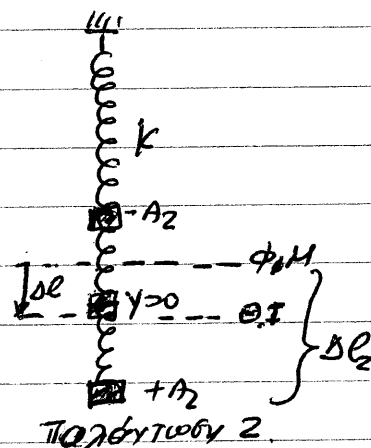 K
-A₂
Φ.Μ
Δℓ
y=0
Θ.Ι
Δℓ₂
+A₂
Ταλάντωση 2.